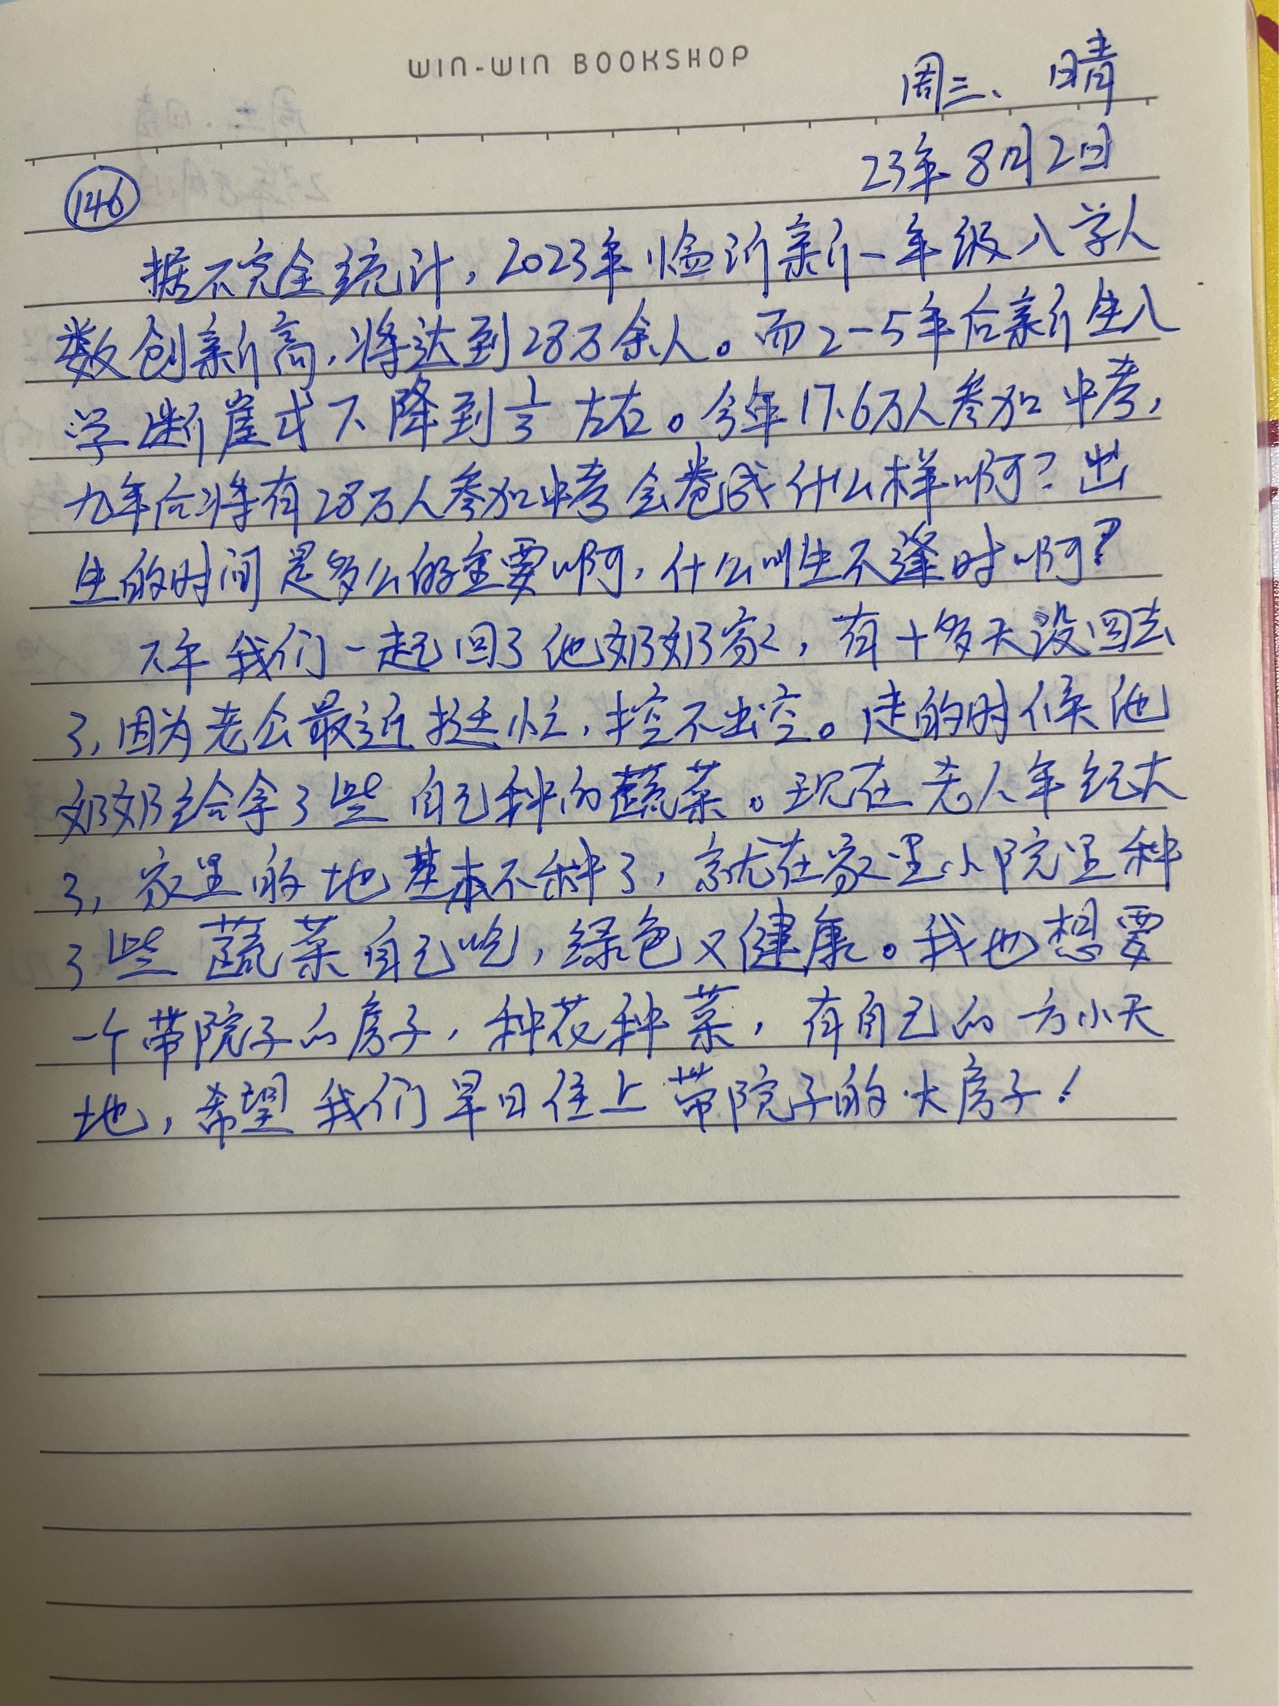 WIN-WIN BOOKSHOP
周三、晴
23年8月2日
146
据不完全统计,2023年临沂新一年级入学人
数创新高,将达到28万余人。而2-5年后新生入
学断崖式下降到1/3左右。今年17.6万人参加中考,
九年后将有28万人参加中考会卷成什么样啊?出
生的时间是多么的重要啊,什么叫生不逢时啊?
下午我们一起回了他奶奶家,有十多天没回去
了,因为老公最近挺忙,抽不出空。走的时候他
奶奶给拿了些自己种的蔬菜。现在老人年纪大
了,家里的地基本不种了,就在家里小院里种
了些蔬菜自己吃,绿色又健康。我也想要
一个带院子的房子,种花种菜,有自己的一方小天
地,希望我们早日住上带院子的大房子!